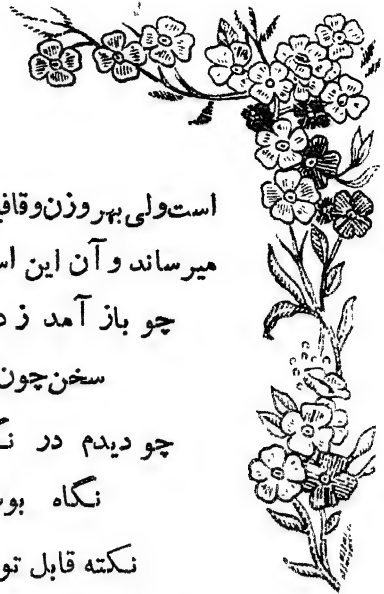 است‌ولی‌بهروزن‌وقافی
میرساند و آن این اس
چو باز آمد ز د
سخن چون
چو دیدم در نگ
نگاه بو
نکته قابل تو